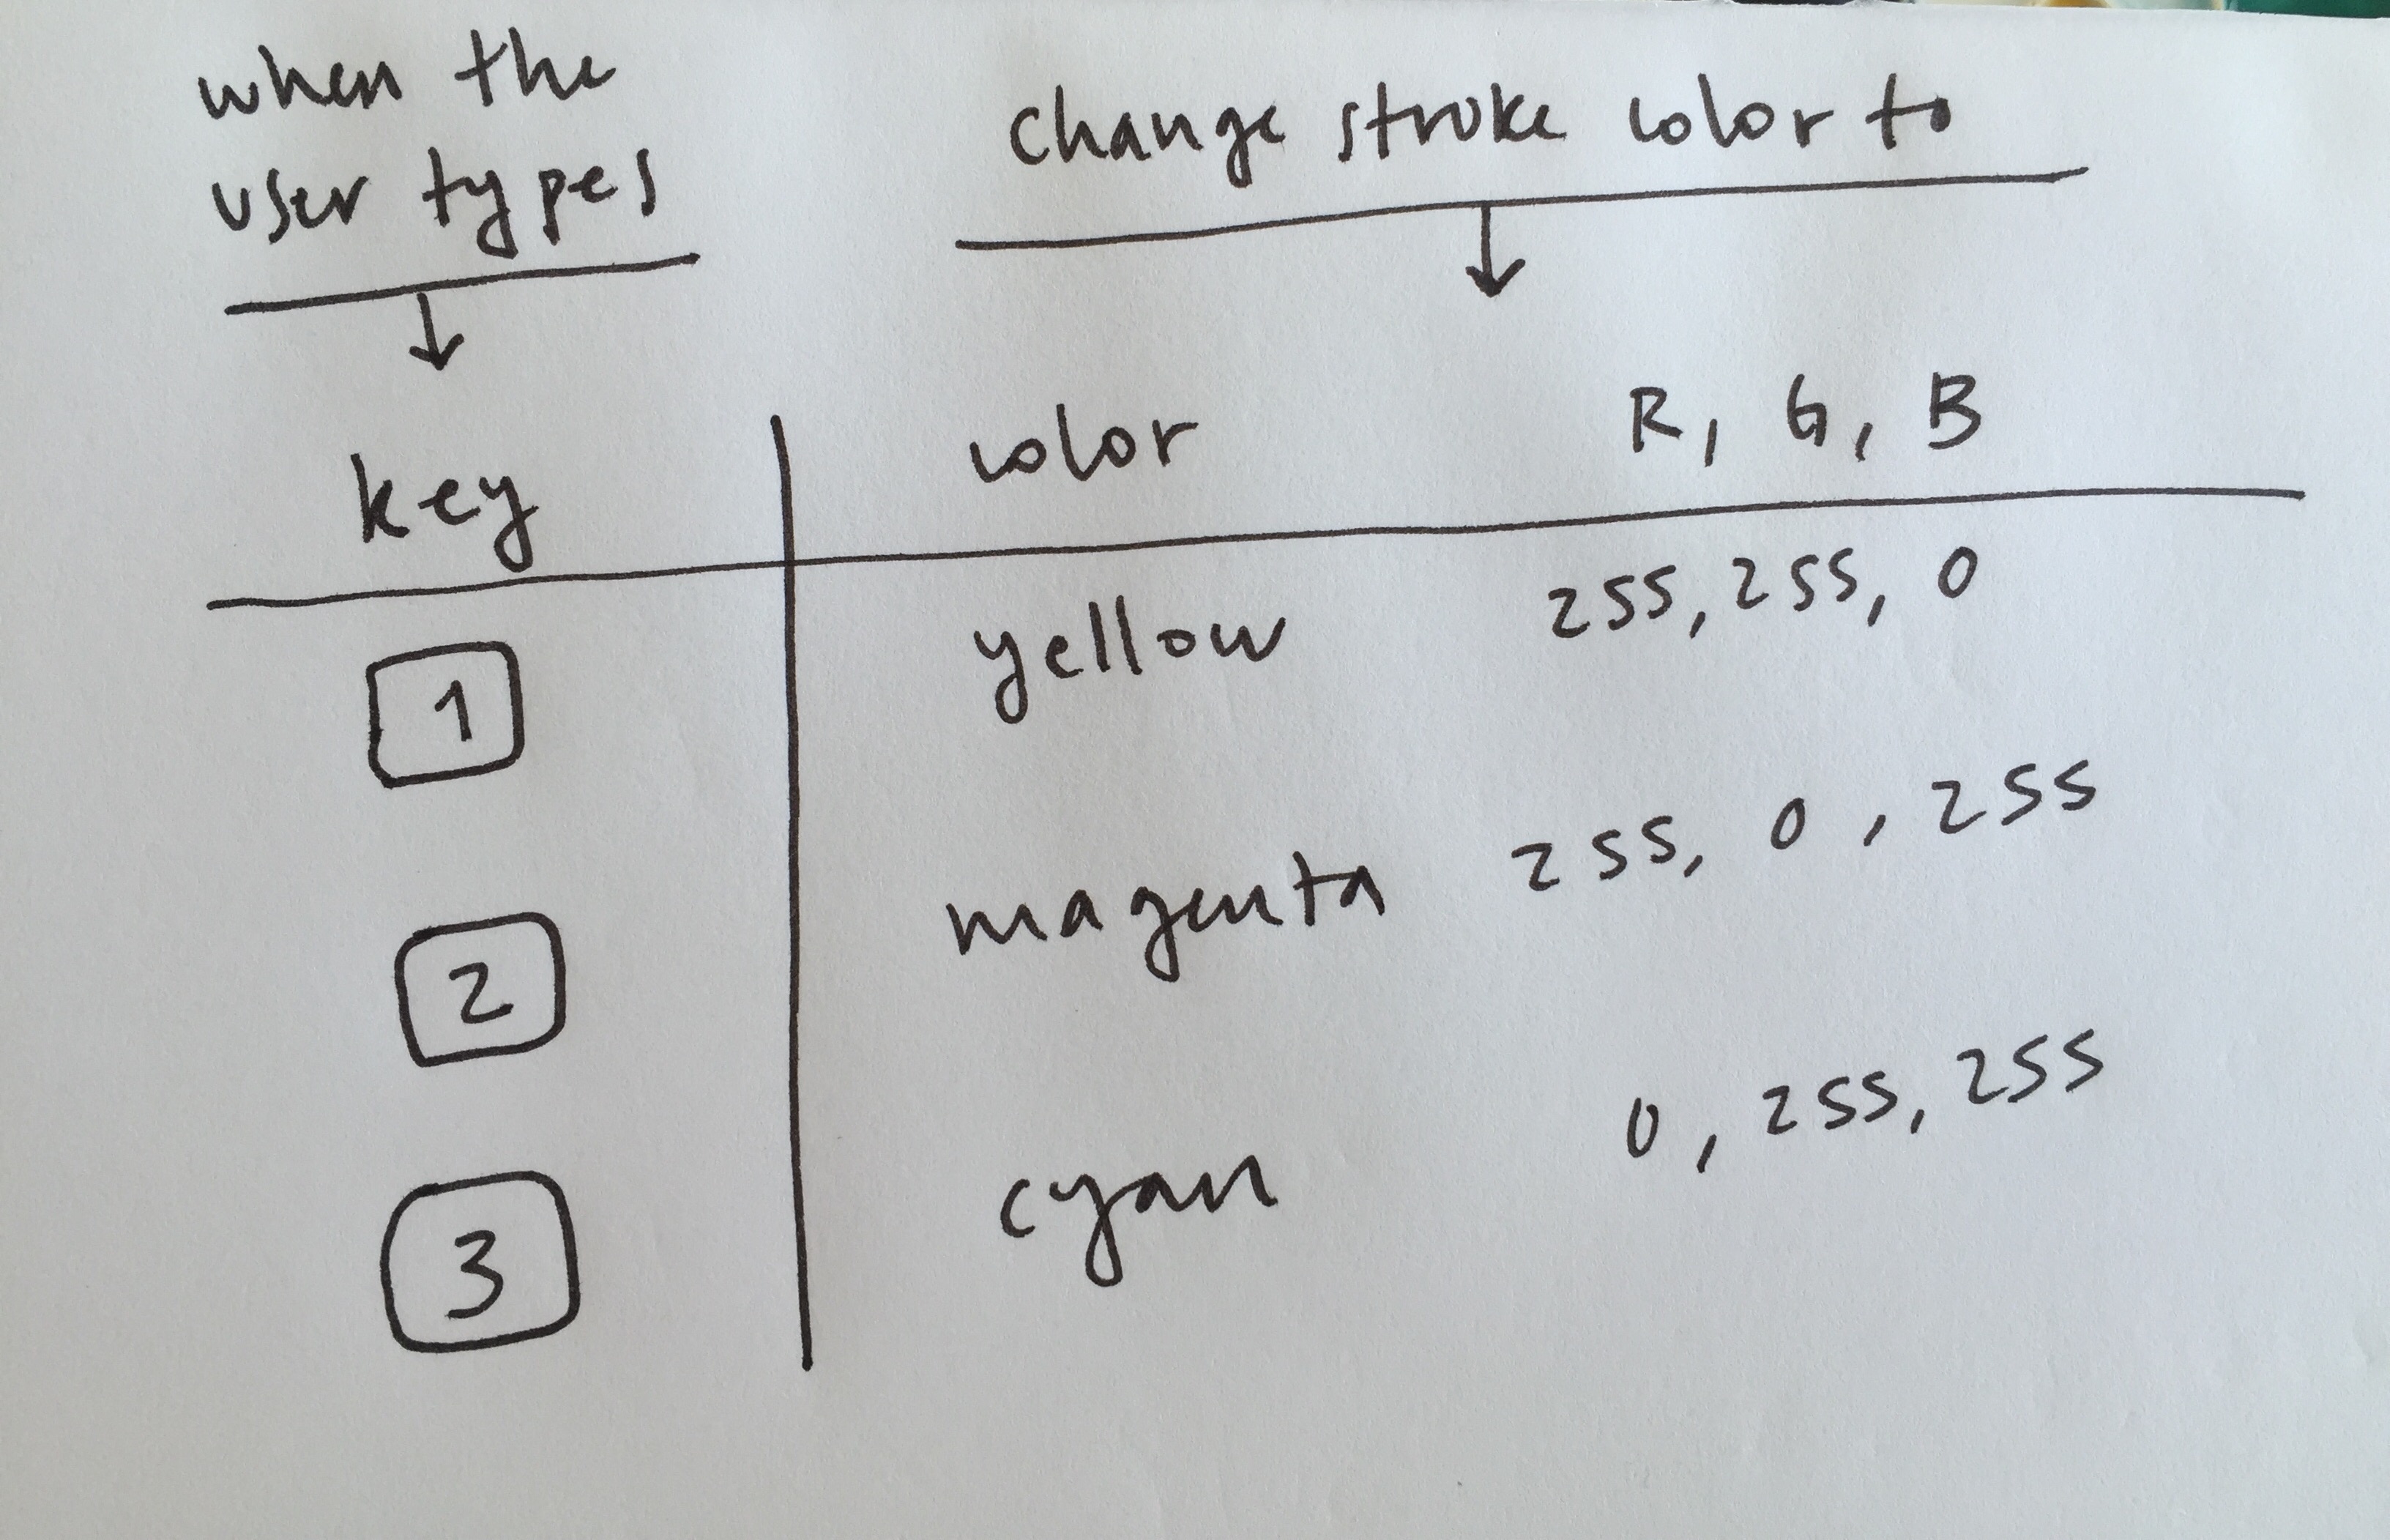 when the
user types
change stroke color to
key color R, G, B
1 yellow 255, 255, 0
2 magenta 255, 0, 255
3 cyan 0, 255, 255